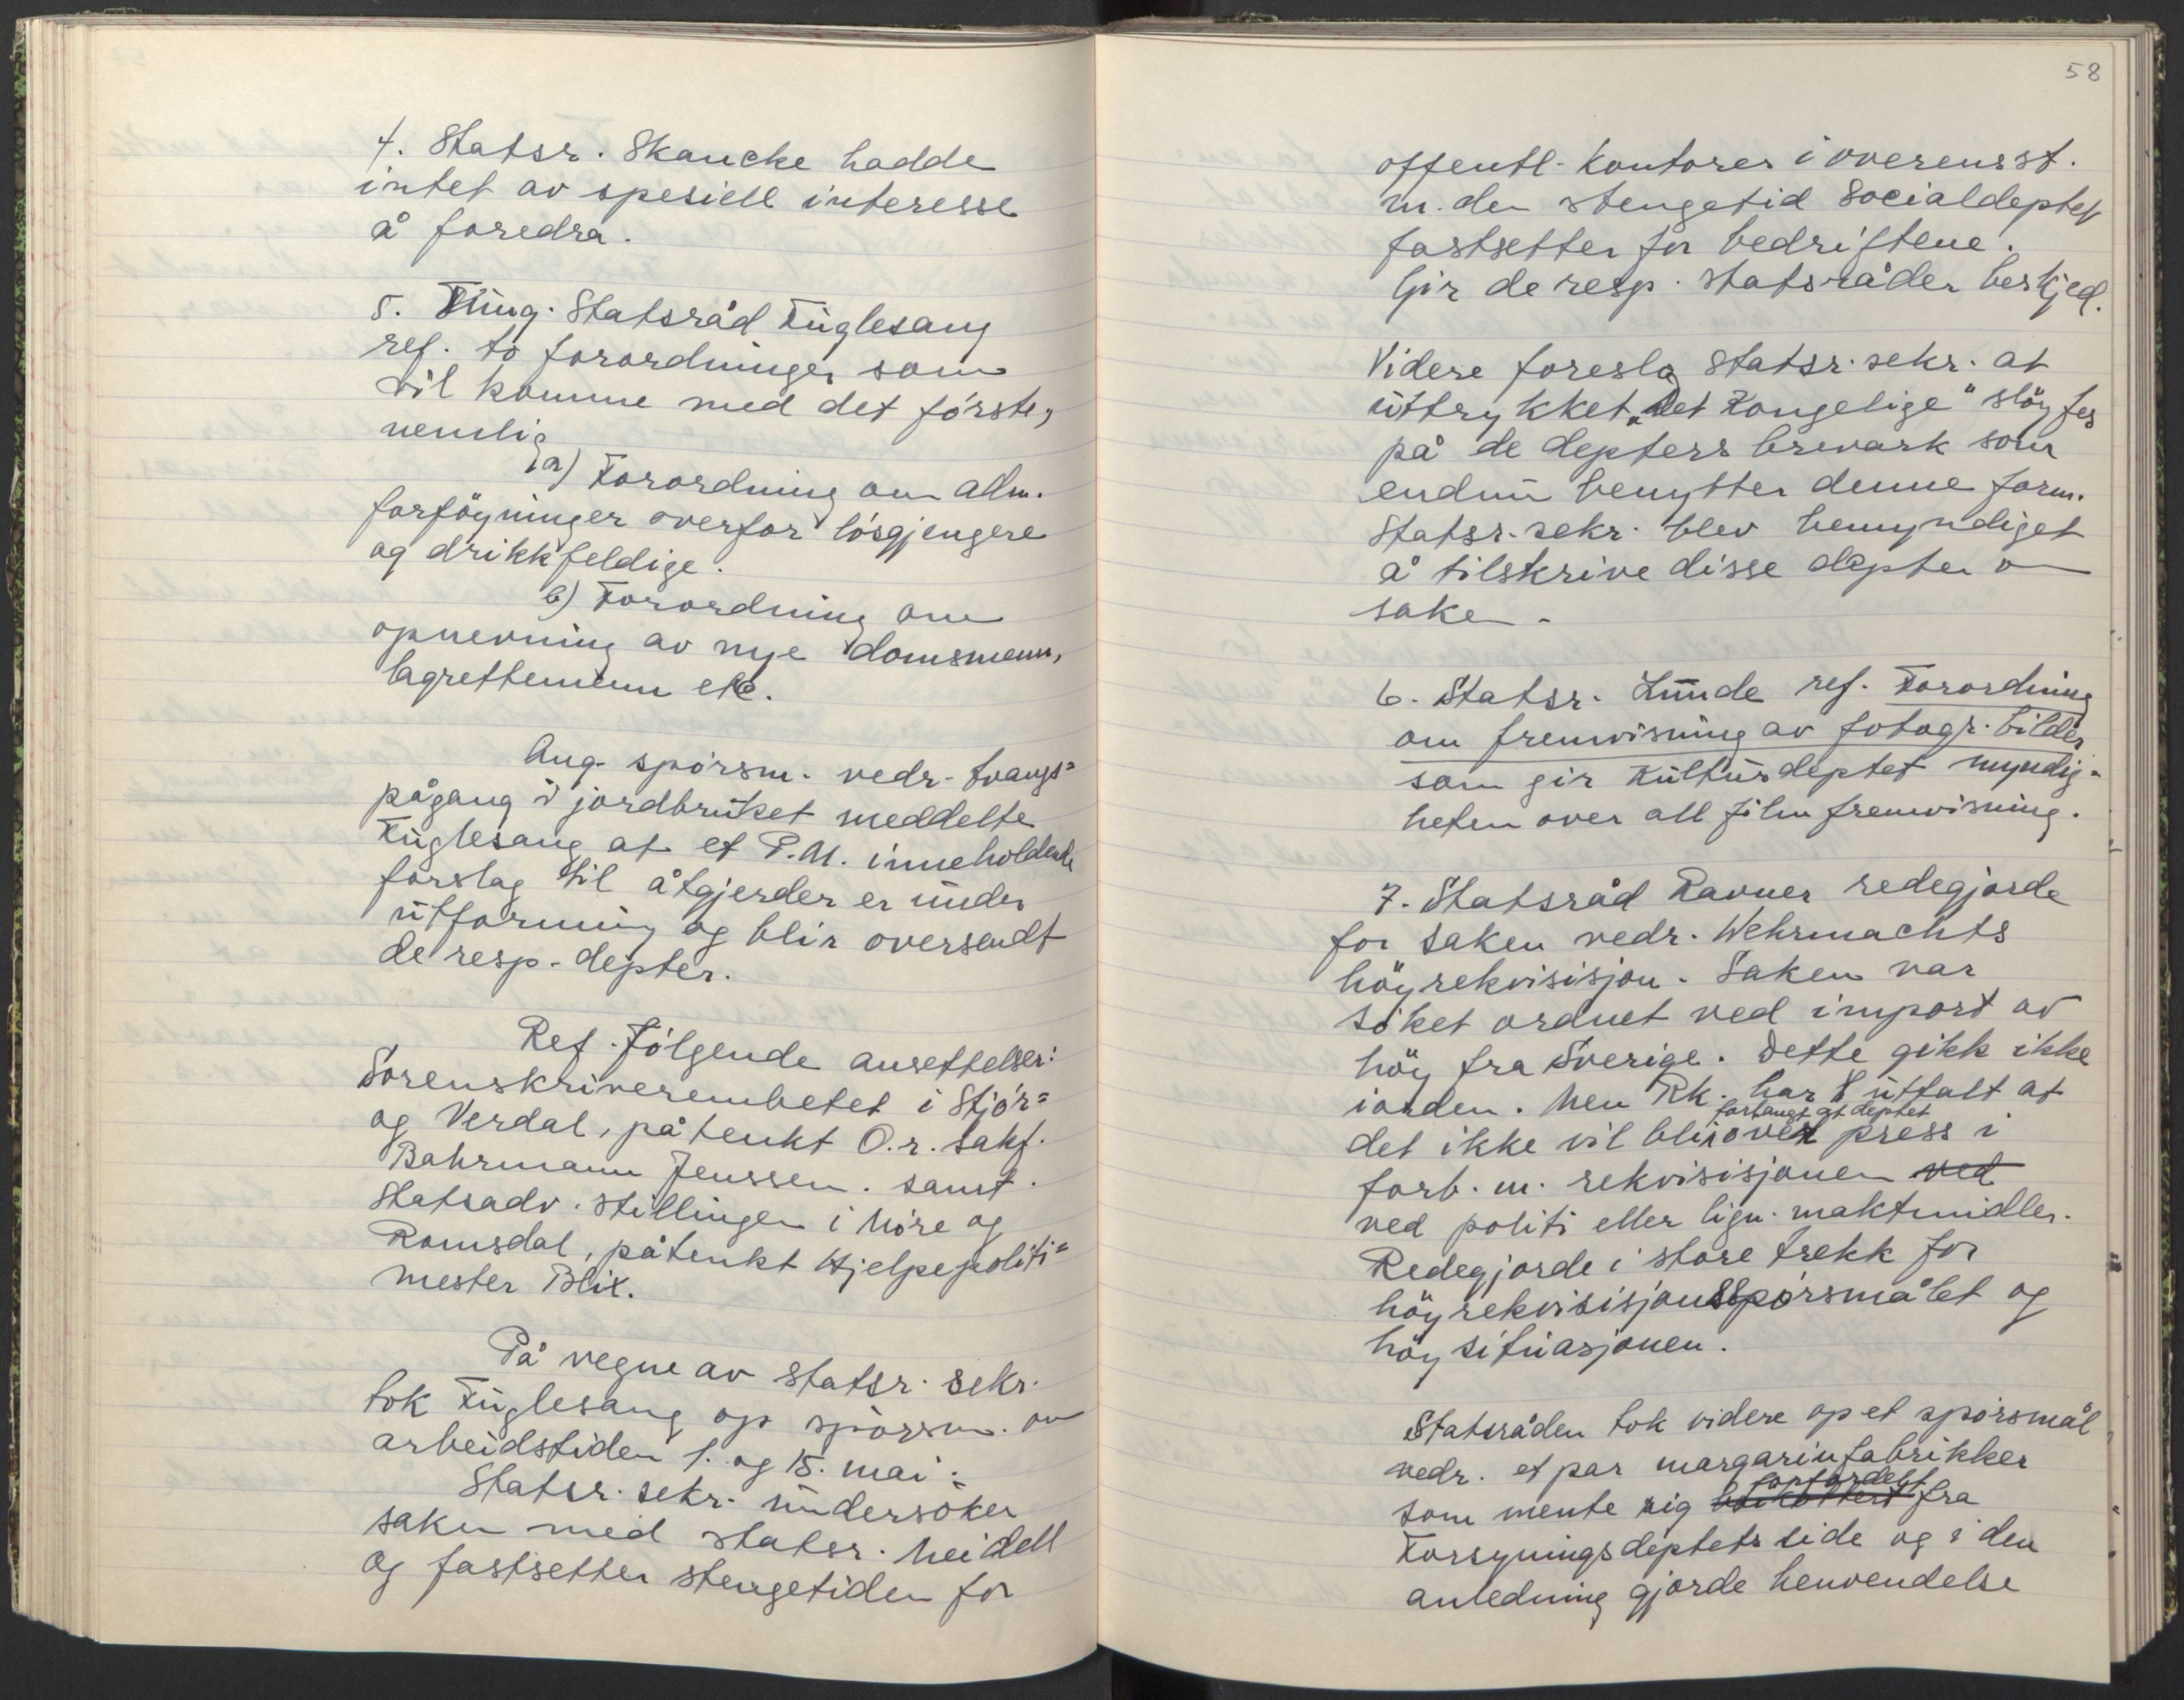 4. Statsr. Skancke hadde
intet av spesiell interesse
å foredra.
5. Fung. Statsråd Fuglesang
ref. to forordninger som
vil komme med det første,
nemlig
a) Forordning om alm.
forföyninger overfor lösgjengere
og drikkfeldige.
b) Forordning om
opnevning av nye domsmenn,
lagrettemenn etc.
Ang. spörsm. vedr. tvangs=
pågang i jordbruket meddelte
Fuglesang at et P.M. inneholdende
forslag til åtgjerder er under
utforming og blir oversendt
de resp. depter.
Ref. fölgende ansettelser:
Sorenskriverembetet i Stjör=
og Verdal, påtenkt O.r. sakf.
Bahrmann Jenssen. samt.
Statsadv. stillingen i Möre og
Romsdal, påtenkt Hjelpepoliti=
mester Blix.
På vegne av statsr. sekr.
tok Fuglesang op spörsm. om
arbeidstiden 1. og 15. mai:
Statsr. sekr. undersöker
saken med statsr. Meidell
og fastsetter stengetiden for
58
offentl. kontorer i overensst.
m. den stengetid Socialdeptet
fastsetter for bedriftene.
Gir de resp. statsråder beskjed.
Videre foreslo Statsr. sekr. at
uttrykket „Det Kongelige" slöyfes
på de depters brevark som
endnu benytter denne form.
Statsr. sekr. blev bemyndiget
å tilskrive disse depter om
saken.
6. Statsr. Lunde ref. Forordning
om fremvisning av fotogr. bilder
som gir Kulturdeptet myndig=
heten over all film fremvisning.
7. Statsråd Ravner redegjorde
for saken vedr. Wehrmachts
höyrekvisisjon. Saken var
söket ordnet ved import av
höy fra Sverige. Dette gikk ikke
iorden. Men Rk. har uttalt at
forlangt at deptet
det ikke vil bli över press i
forb. m. rekvisisjonen ved
ved politi eller lign. maktmidler.
Redegjorde i store trekk for
höyrekvisisjonsspörsmålet og
höysituasjonen.
Statsråden tok videre op et spörsmål
vedr. et par margarinfabrikker
forfordelt
som mente sig boikottert fra
Forsyningsdeptets side og i den
anledning gjorde henvendelse